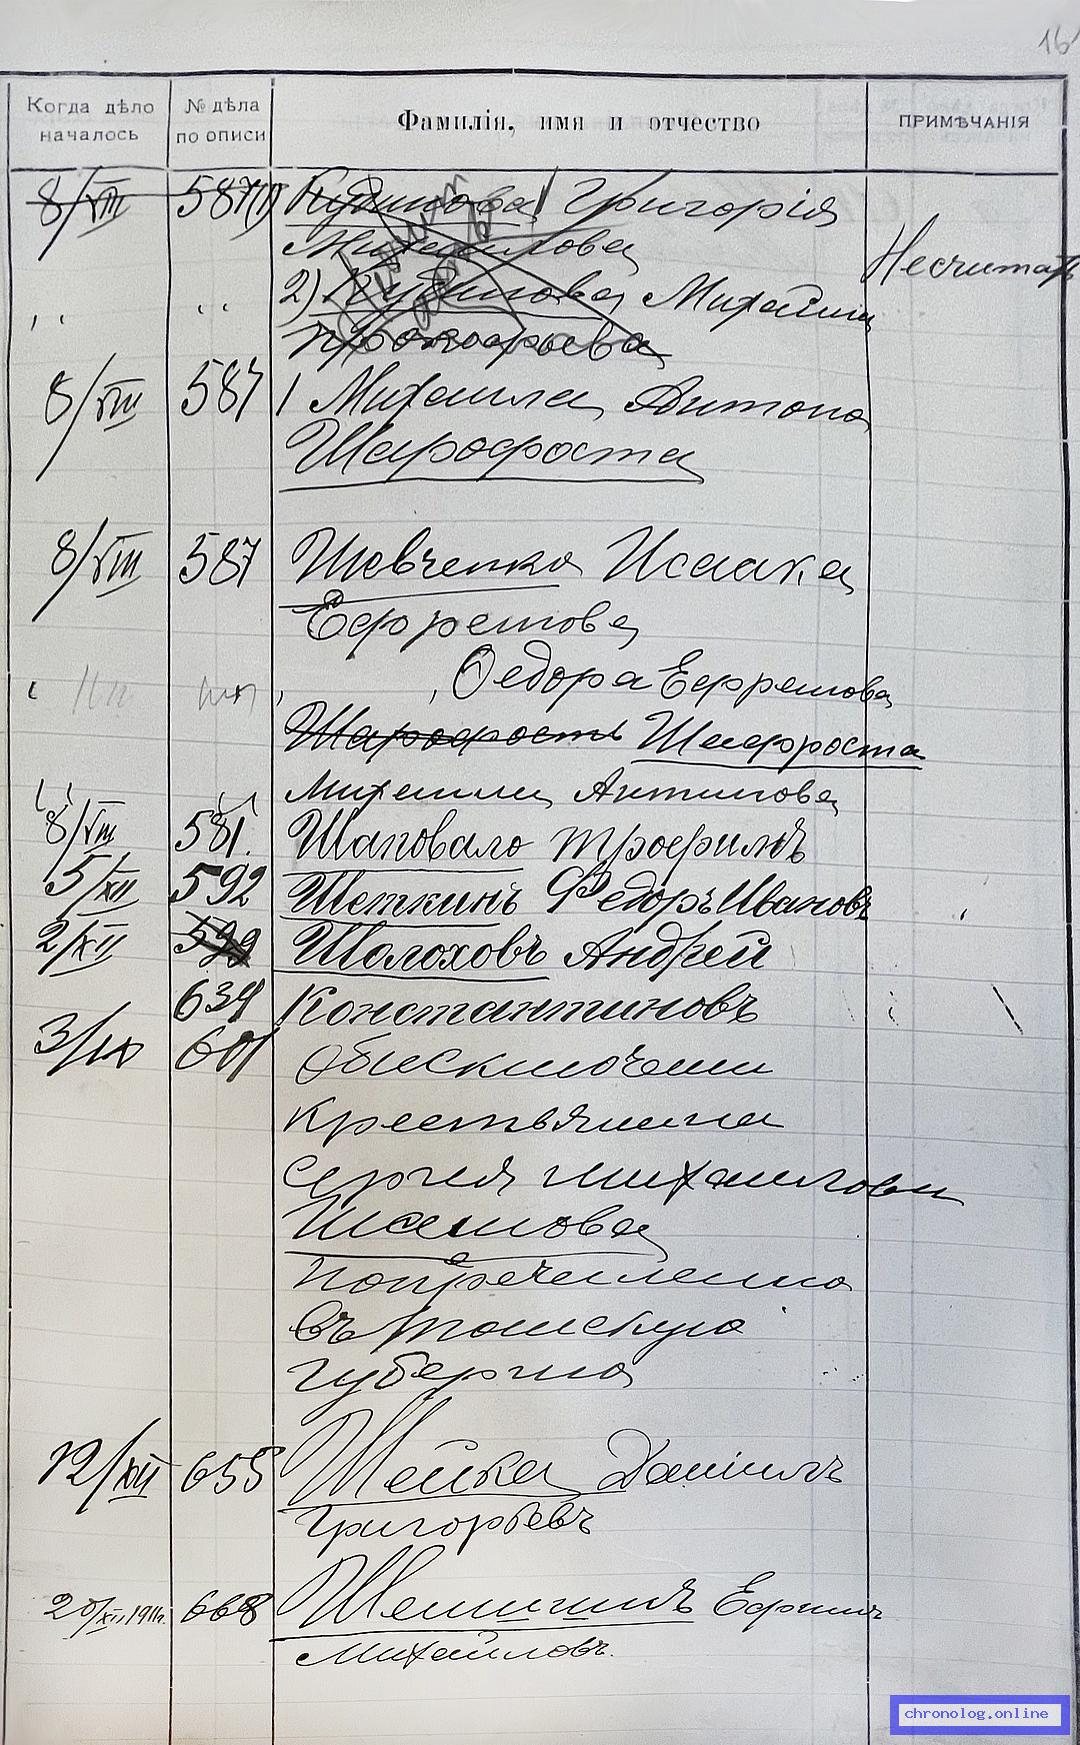 16
Когда дѣло началось
№ дѣла по описи
Фамилія, имя и отчество
ПРИМѢЧАНІЯ
8/VIII 587(1) Кудинова Григорія
Михаилова
Несчитать
2) Кудинова Михаила
Прокофьева
8/VIII 587 1 Михаила Антона
Шарофоста
8/VIII 587 Шевченко Исаака
Ефремова
Федора Ефремова
Шарофость Шафроста
Михаила Антипова
8/VIII 581. Шаповало Трофимъ
5/XII 592 Щеткинъ Федоръ Ивановъ
2/XII 599 Шолоховъ Андрей
634 Константиновъ
3/IX 601 Объисключении
крестьянина
Сергия Михаиловы
Шамова
поприечислению
въ Томскую
губернию
12/XII 655 Шейка Даниилъ
Григорьевъ
20/XII 1911г. 668 Шемшимъ Ефимъ
Михайловъ.
chronolog.online